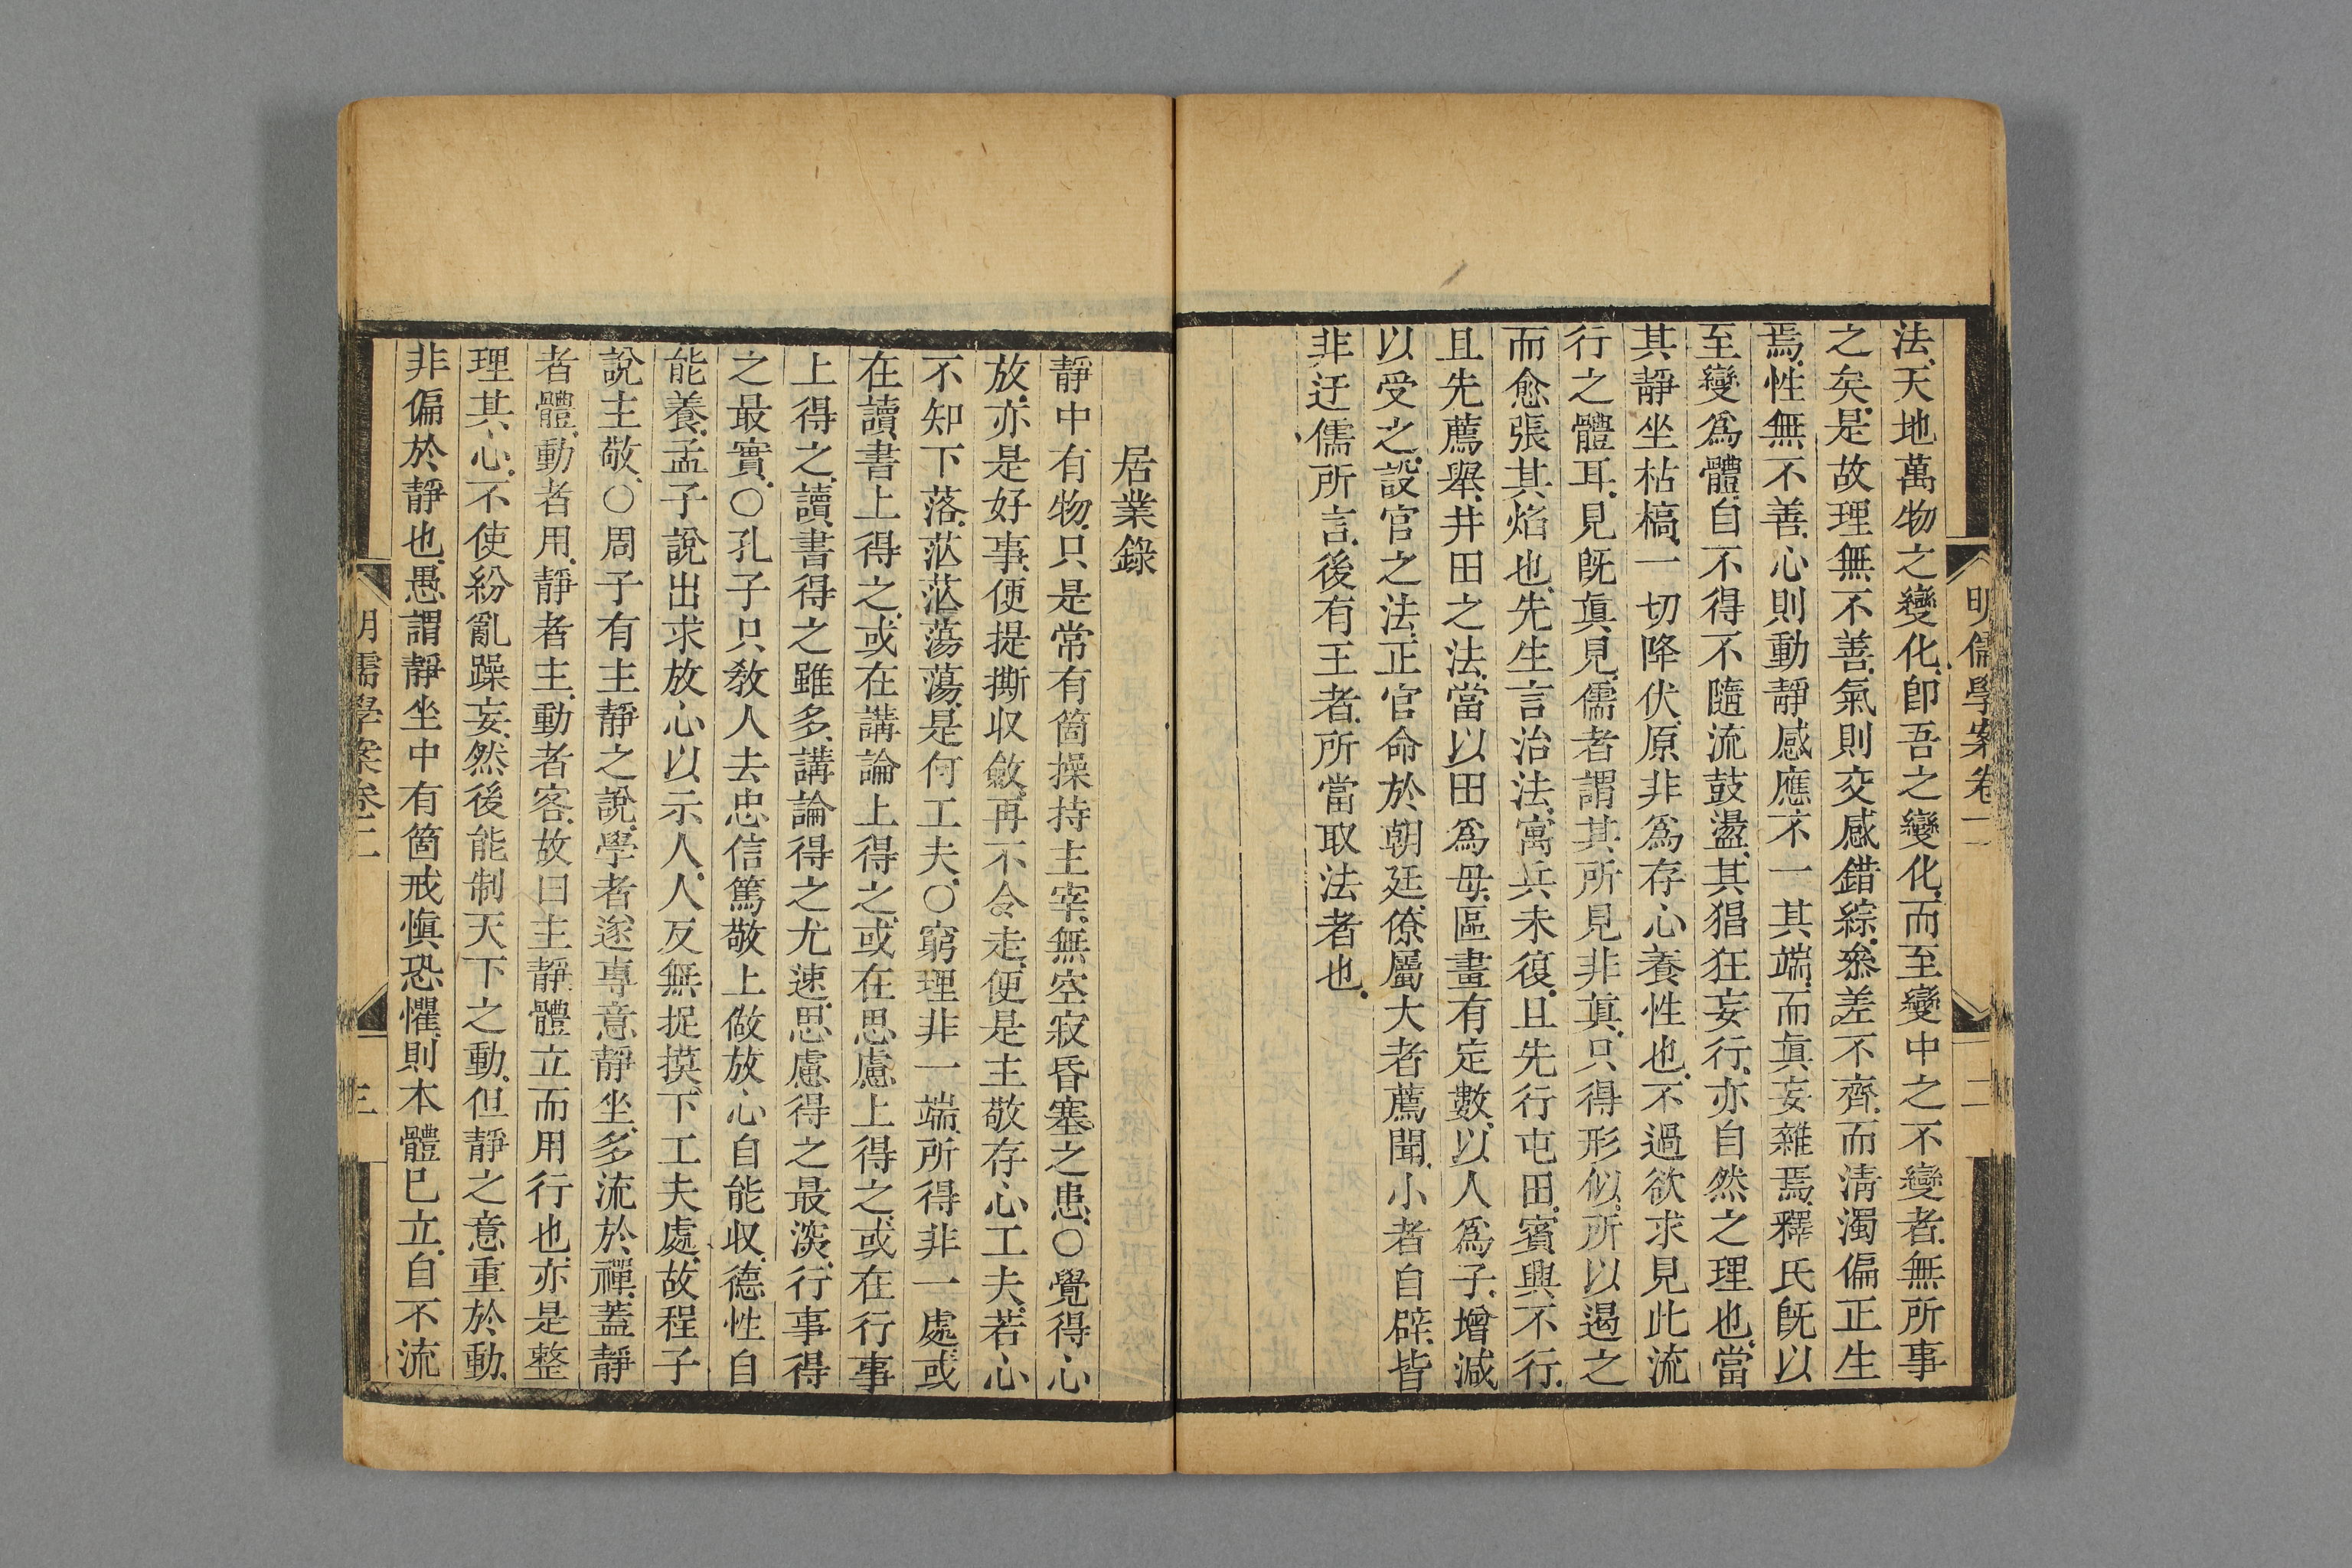 明儒學案卷二
二
法、天地萬物之變化、卽吾之變化、而至變中之不變者、無所事
之矣、是故理無不善、氣則交感錯綜、叅差不齊、而淸濁偏正生
焉、性無不善、心則動靜感應、不一其端、而眞妄雜焉、釋氏旣以
至變爲體、自不得不隨流鼓盪、其猖狂妄行、亦自然之理也、當
其靜坐枯槁、一切降伏、原非爲存心養性也、不過欲求見此流
行之體耳、見旣眞見、儒者謂其所見非眞、只得形似、所以遏之
而愈張其焰也、先生言治法、寓兵未復、且先行屯田、賓興不行、
且先薦舉、井田之法、當以田爲母、區畫有定數、以人爲子、增減
以受之、設官之法、正官命於朝廷、僚屬大者薦聞、小者自辟、皆
非迂儒所言、後有王者、所當取法者也、
居業錄
靜中有物、只是常有箇操持主宰、無空寂昏塞之患、○覺得心
放、亦是好事、便提撕収斂、再不令走、便是主敬存心工夫、若心
不知下落、茫茫蕩蕩、是何工夫、○窮理非一端、所得非一處、或
在讀書上得之、或在講論上得之、或在思慮上得之、或在行事
上得之、讀書得之雖多、講論得之尤速、思慮得之最深、行事得
之最實、○孔子只敎人去忠信篤敬上做、放心自能収、德性自
能養、孟子說出求放心以示人、人反無捉摸下工夫處、故程子
說主敬、○周子有主靜之說、學者遂專意靜坐、多流於禪、蓋靜
者體、動者用、靜者主、動者客、故曰主靜、體立而用行也、亦是整
理其心、不使紛亂躁妄、然後能制天下之動、但靜之意重於動、
非偏於靜也、愚謂靜坐中有箇戒愼恐懼、則本體已立、自不流
明儒學案卷二
三